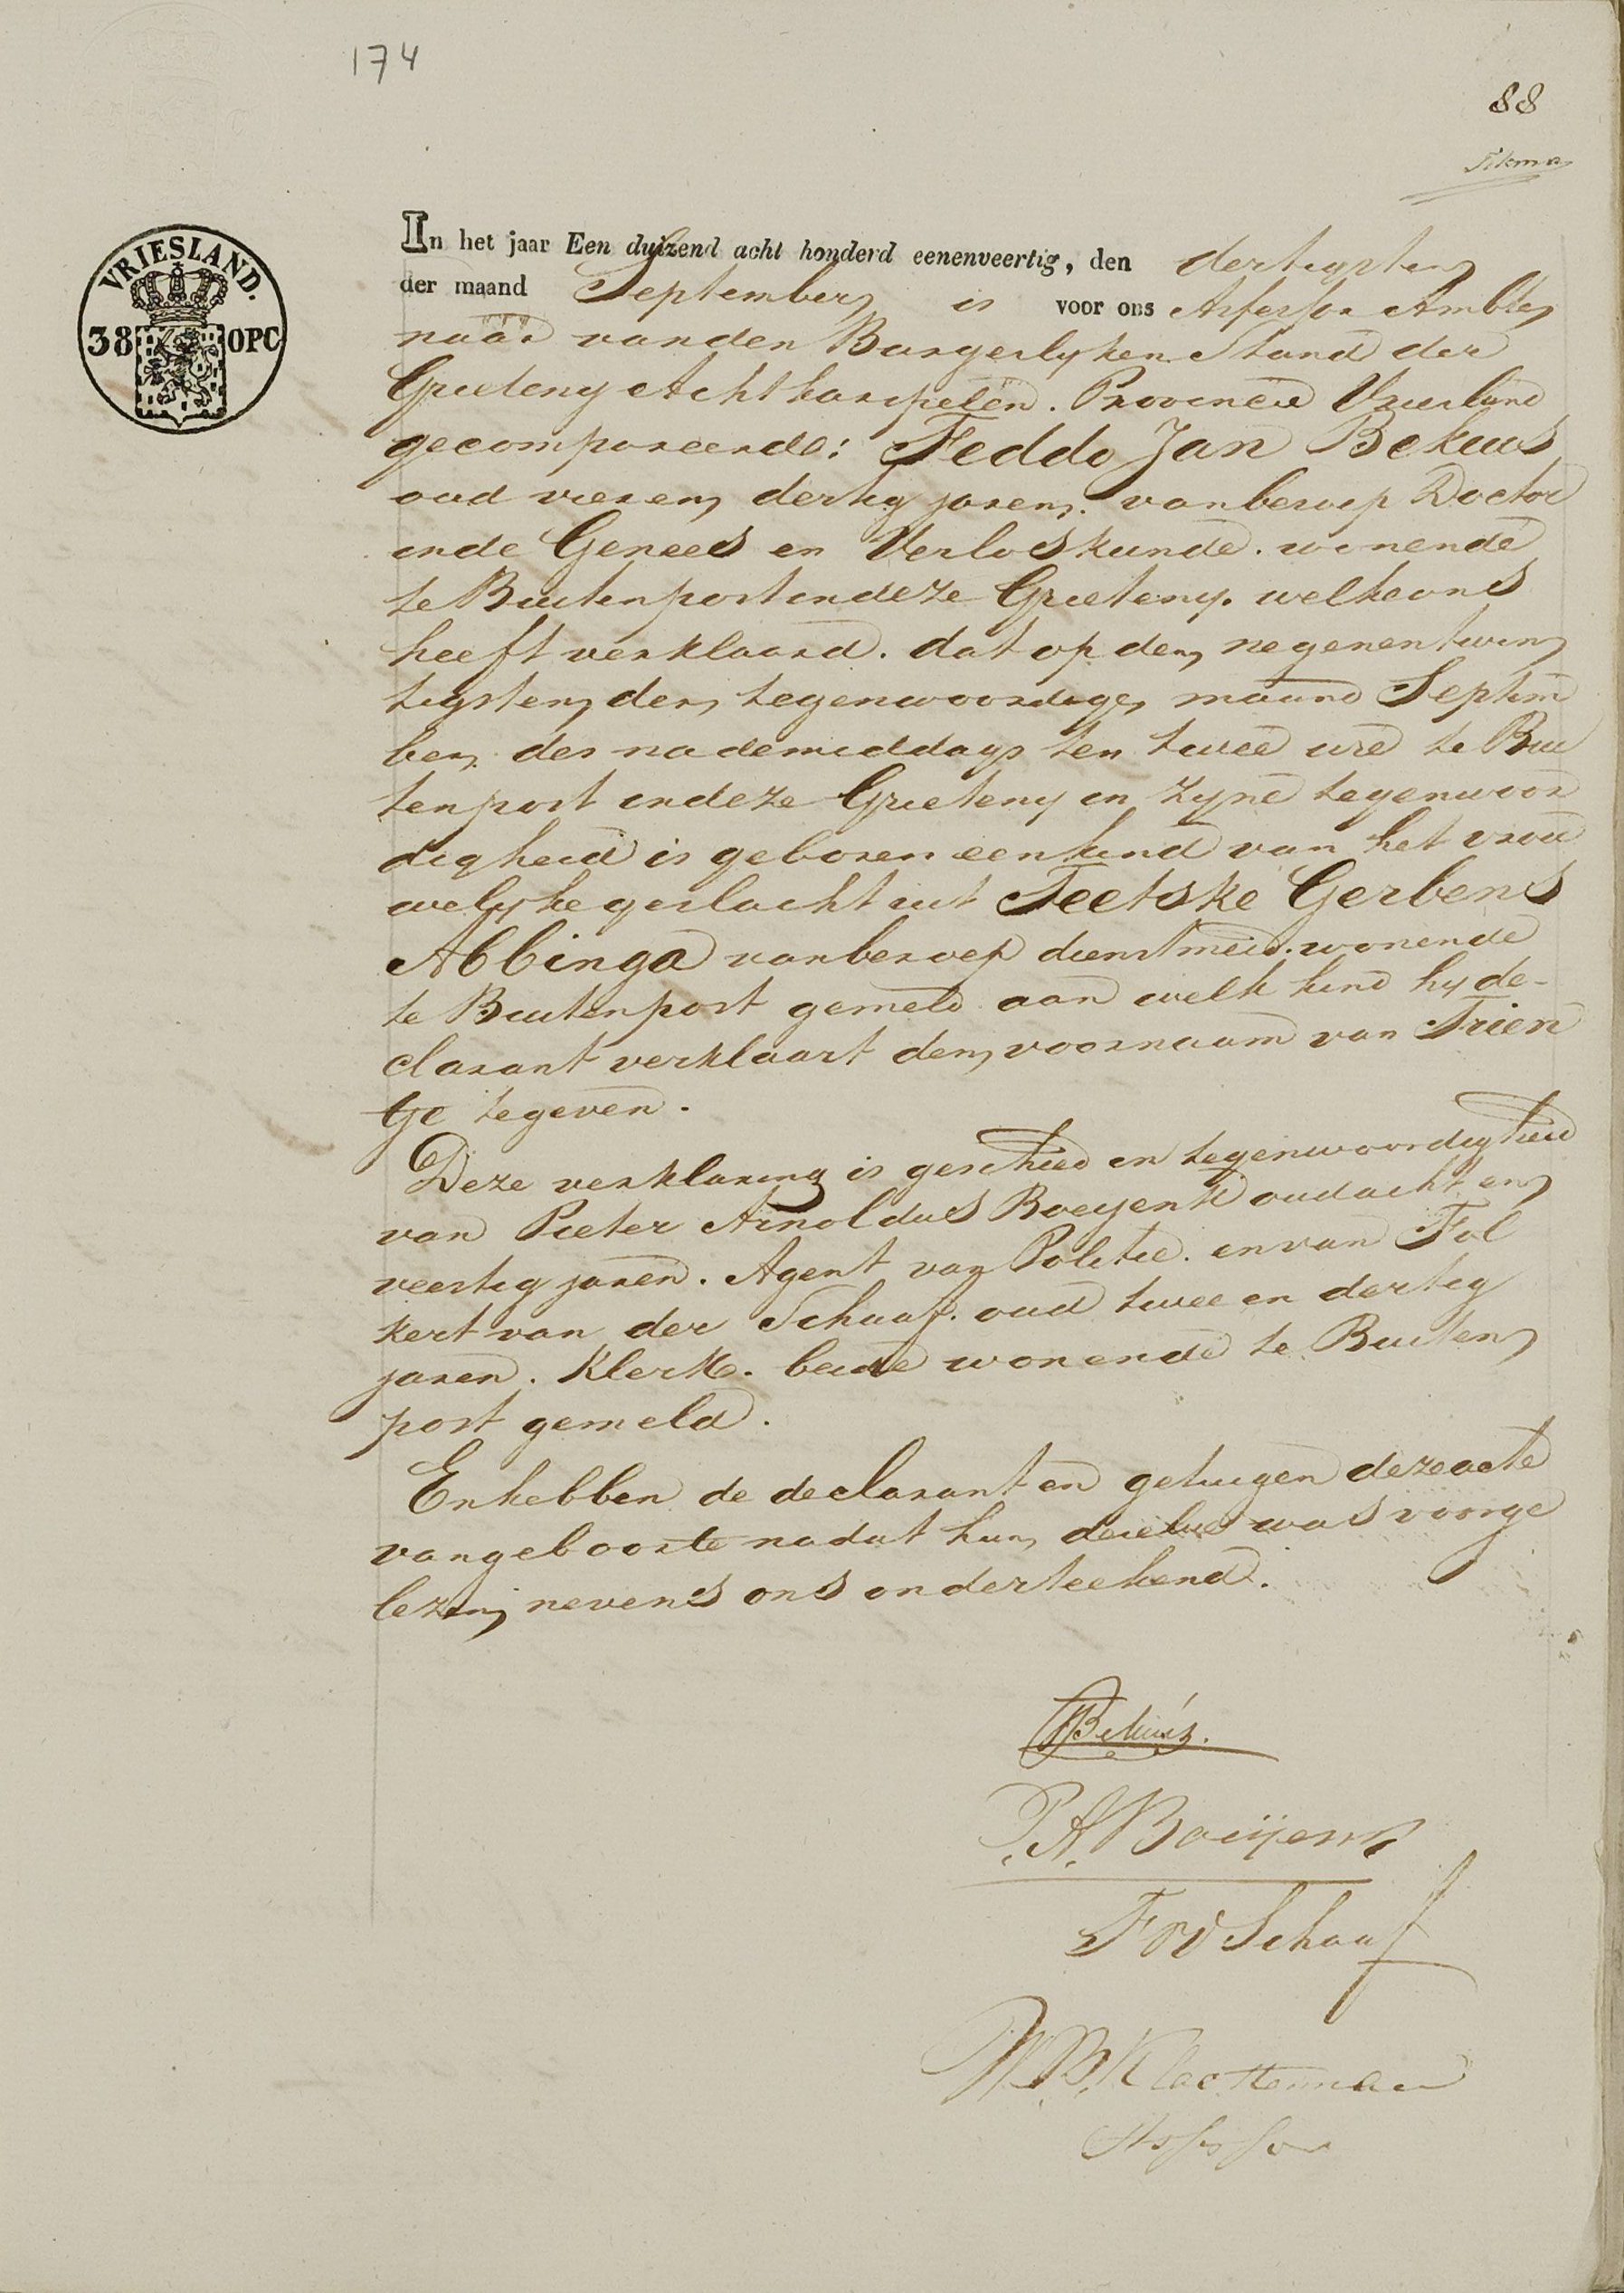 174
88
VRIESLAND.
38 OPC
In het jaar Een duizend acht honderd eenenveertig, den dertigsten
der maand September is voor ons Assessor Ambte
naar van den Burgerlyken Stand der
Grieteny Achtkarspelen. Provincie Vriesland
gecompareerde: Feddo Jan Bekius
oud vier en dertig jaren. van beroep Doctor
in de Genees en Verloskunde. wonende
te Buitenpost in deze Grieteny. welke ons
heeft verklaard. dat op den negenentwin
tigsten der tegenwoordige maand Septem
ber, des nademiddags ten twee ure te Bui
tenpost in deze Grieteny in zyne tegenwoor
digheid is geboren een kind van het vrou
welyke geslacht uit Teetske Gerbens
Abbinga van beroep dienstmeid. wonende
te Buitenpost gemeld aan welk kind hy de-
clarant verklaart den voornaam van Trien
tje te geven.
Deze verklaring is geschied in tegenwoordigheid
van Pieter Arnoldus Boeyenk oud acht en
veertig jaren. Agent van Politie. en van Fol
kert van der Schaaf. oud twee en dertig
jaren. Klerk. beide wonende te Buiten
post gemeld.
En hebben de declarant en getuigen deze acte
van geboorte nadat hun dezelve was voorge
lezen, nevens ons onderteekend.
FJBekius.
P. A. Boeijenk
F v d Schaaf
W. B. Kloosterman
Assessor